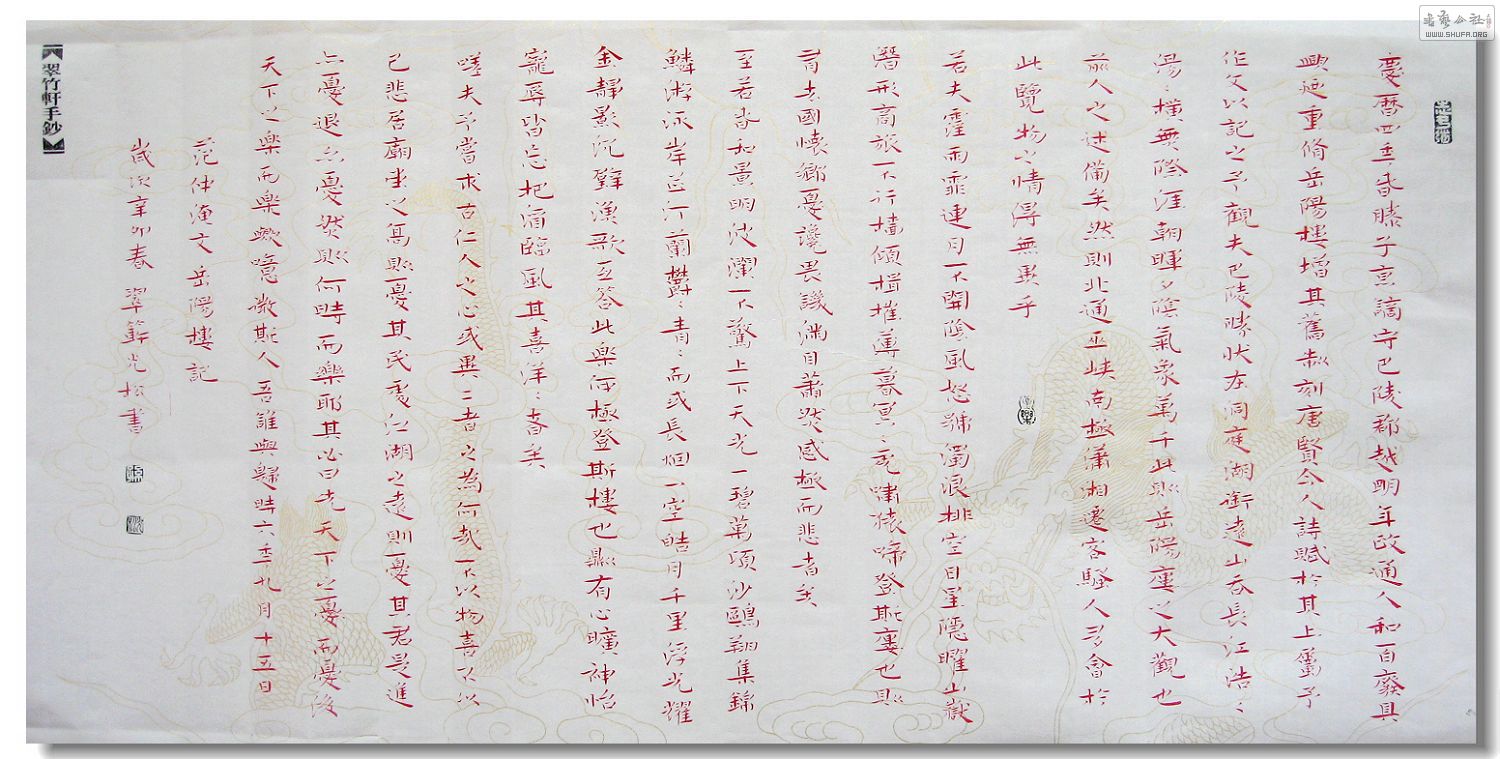 慶曆四年春滕子京謫守巴陵郡越明年政通人和百廢具
興廼重脩岳陽樓增其舊制刻唐賢今人詩賦於其上屬予
作文以記之予觀夫巴陵勝狀在洞庭湖銜遠山吞長江浩〻
湯〻橫無際涯朝暉夕陰氣象萬千此則岳陽樓之大觀也
前人之述備矣然則北通巫峽南極瀟湘遷客騷人多會於
此覽物之情得無異乎
若夫霪雨霏連月不開陰風怒號濁浪排空日星隱曜山嶽
潛形商旅不行檣傾楫摧薄暮冥〻虎嘯猿啼登斯樓也則
有去國懷鄉憂讒畏譏滿目蕭然感極而悲者矣
至若春和景明波瀾不驚上下天光一碧萬頃沙鷗翔集錦
鱗游泳岸芷汀蘭鬱〻青〻而或長烟一空皓月千里浮光耀
金靜影沉璧漁歌互答此樂何極登斯樓也則有心曠神怡
寵辱皆忘把酒臨風其喜洋〻者矣
嗟夫予嘗求古仁人之心或異二者之為何哉不以物喜不以
己悲居廟堂之高則憂其民處江湖之遠則憂其君是進
亦憂退亦憂然則何時而樂耶其必曰先天下之憂而憂後
天下之樂而樂歟噫微斯人吾誰與歸時六年九月十五日
范仲淹文岳陽樓記
歲次辛卯春翠簳光松書
翠竹軒手鈔
书艺公社
WWW.SHUFA.ORG